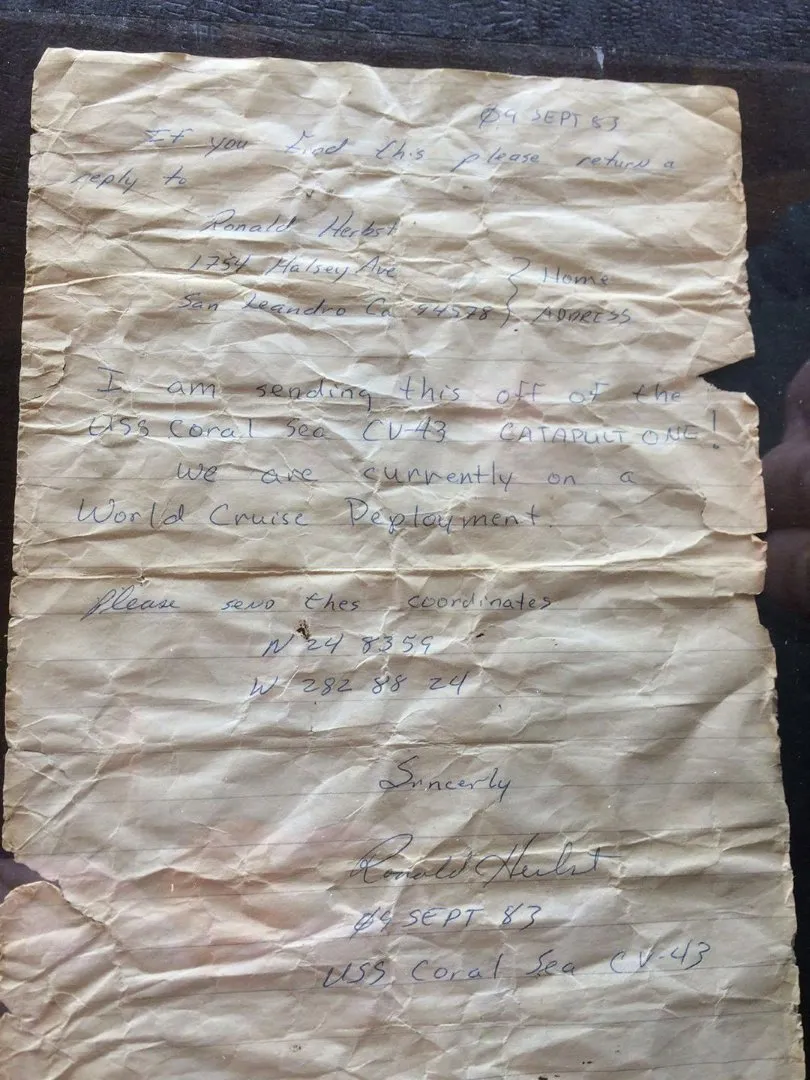 Ø9 SEPT 83
If you find this please return a
reply to
Ronald Herbst
1754 Halsey Ave } Home
San Leandro Ca 94578 } ADDRESS
I am sending this off of the
USS Coral Sea CV-43 CATAPULT ONE!
We are currently on a
World Cruise Deployment.
Please send thes coordinates
N 24 8359
W 282 88 24
Sincerly
Ronald Herbst
Ø9 SEPT 83
USS Coral Sea CV-43